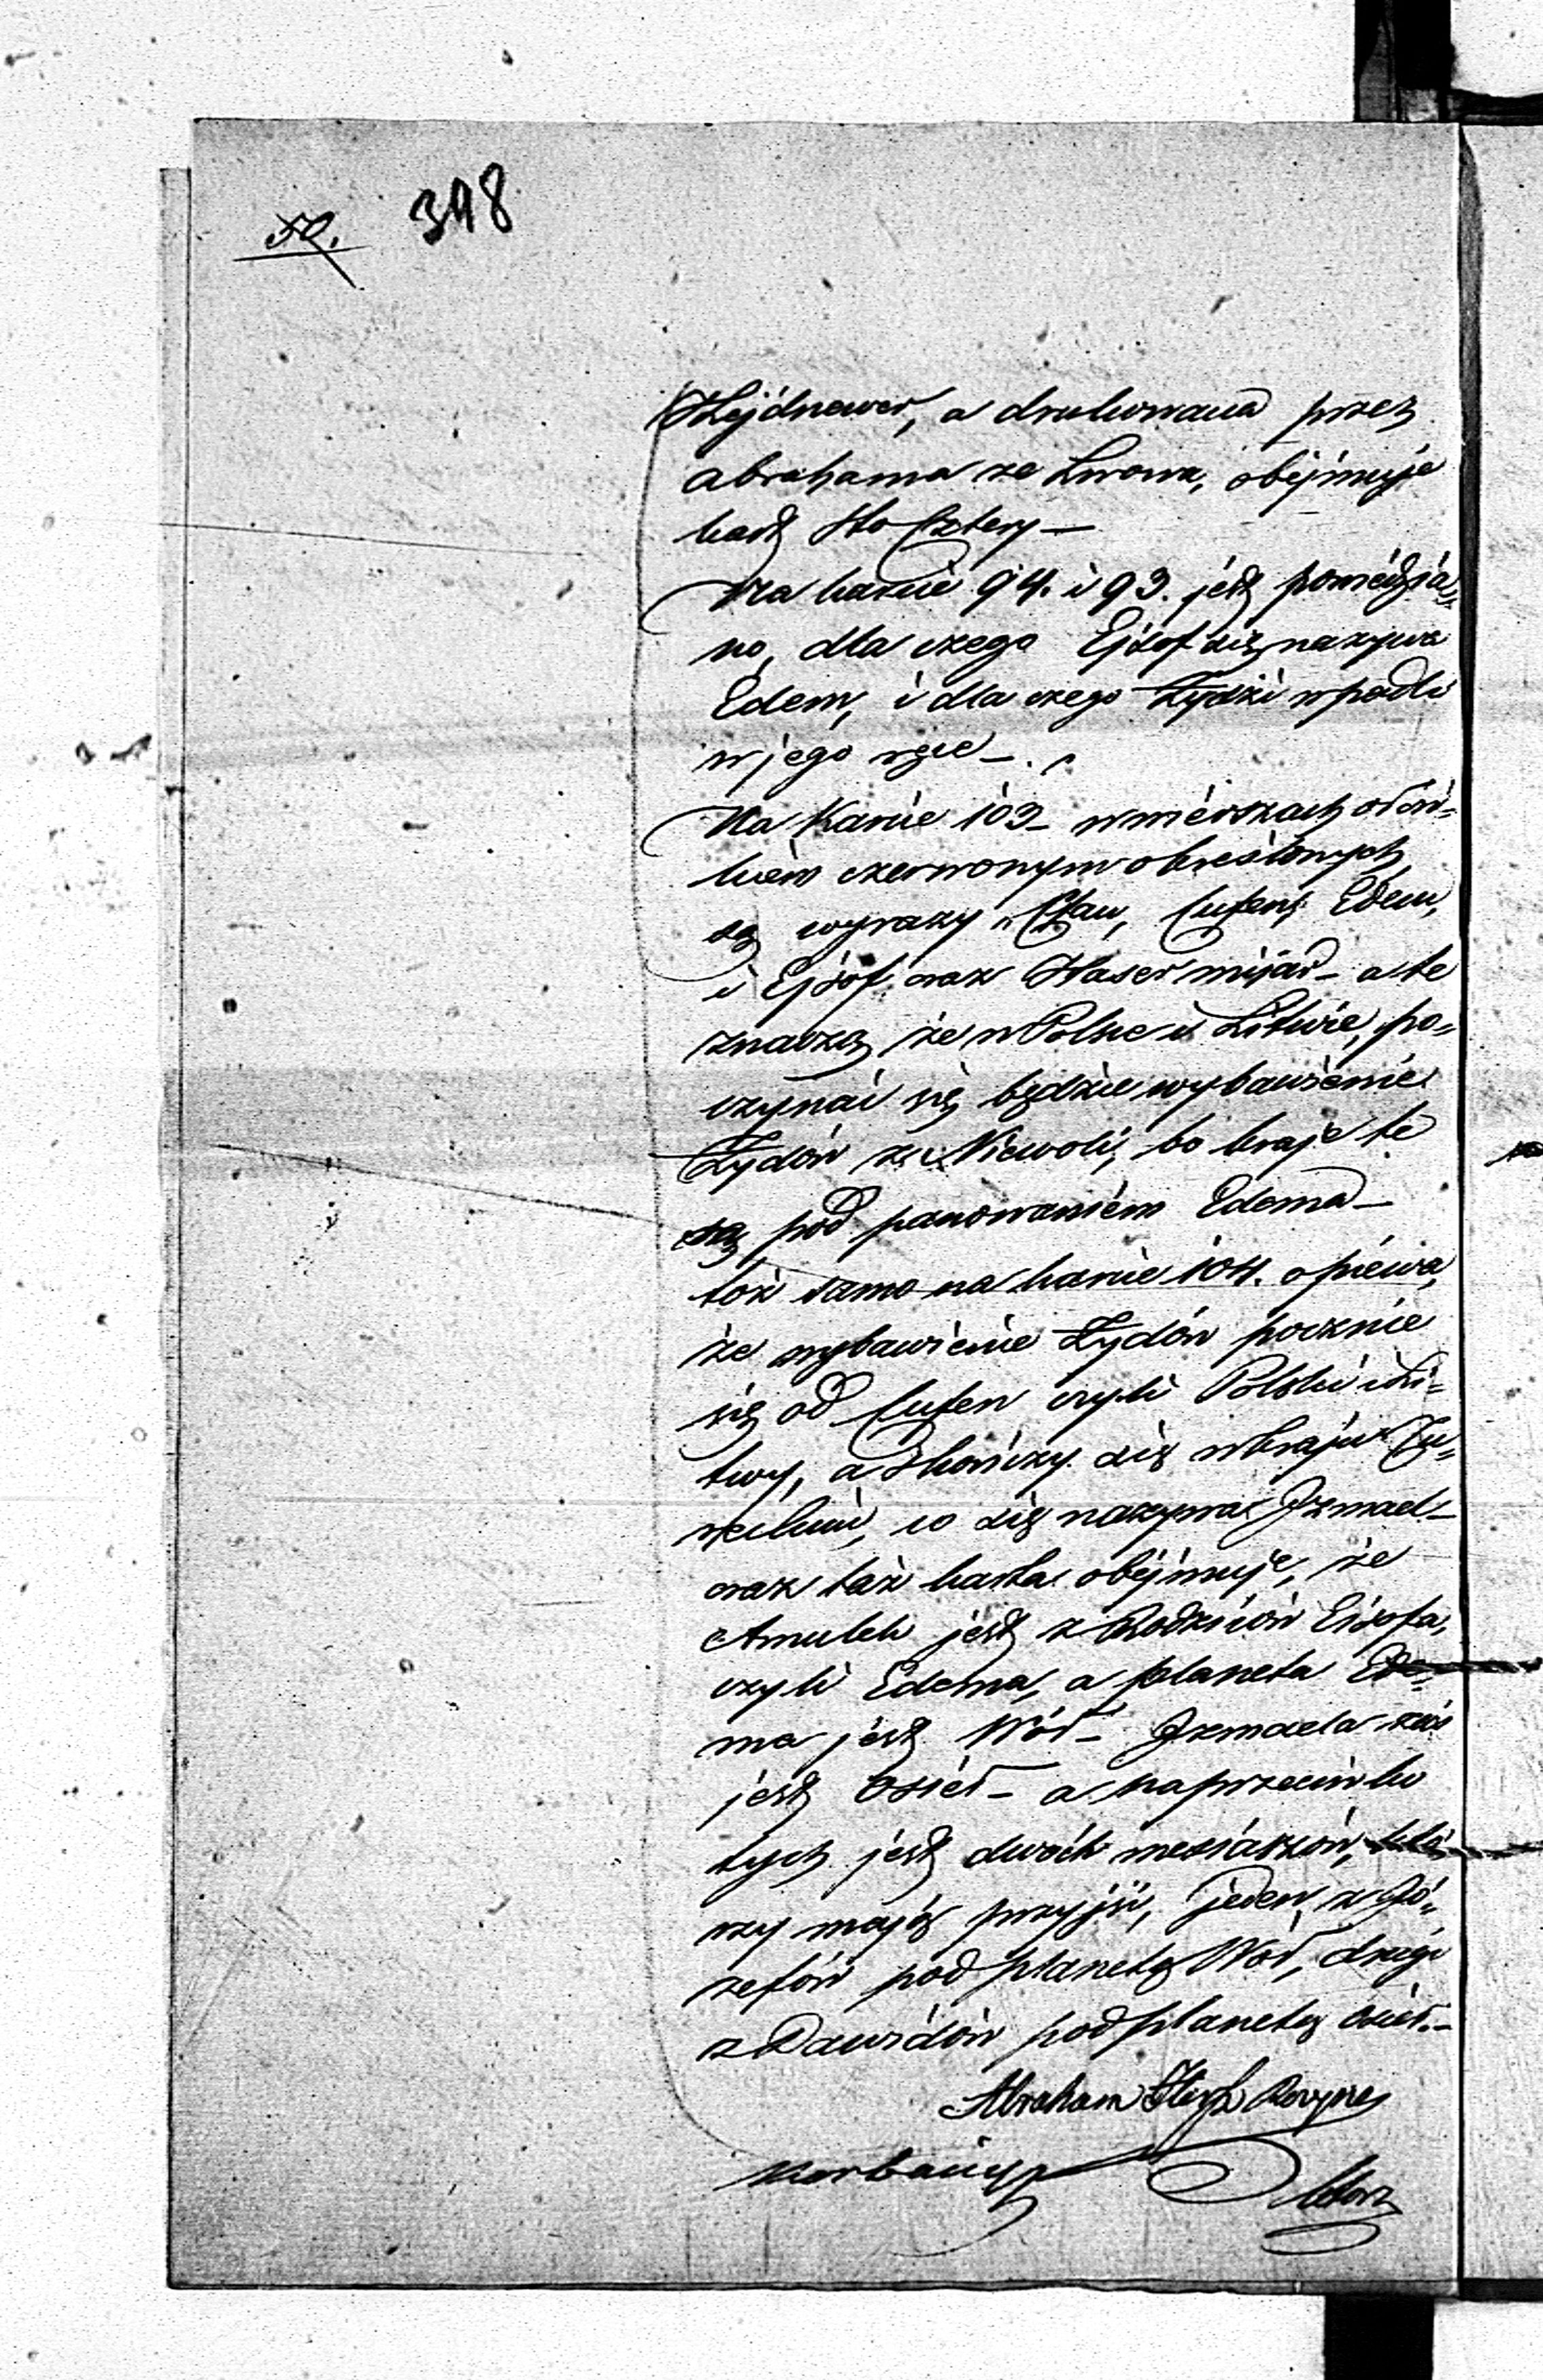 50. 398
a drukowana przez
Abrahama ze Lwowa, obejmuje
kart sto cztery —
Na karcie 94. i 93. jest powiedzia„
no, dla czego Ejsof się nazywa
Edem, i dla czego Żydzi wpadli
w jego ręce —.
Na Karcie 103 — w wierszach ołów„
kiem czerwonym okreslonych
są wyrazy
i Ejsof oraz — a te
znaczą że w Polsce i Litwie, po„
czynać się będzie wybawienie
Żydów z Niewoli, bo kraje te
są pod panowaniem Edoma —
toż samo na karcie 104. opiewa,
że wybawienie Żydów pocznie
się od czyli Polski i Li„
twy, a skończy się w kraju Tu„
reckim, co się nazywa Izmael —
oraz taż karta obejmuje, że
Amulek jest z Rodziców Eisofa,
czyli Edoma, a planeta Edo„
ma jest Wół — Izmaela zaś
jest Osieł — a naprzeciwko
tych jest dwóch mesiaszów, któ„
rzy mają przyjść, jeden z Jó„
zefów pod planetą Wół, drugi
z Dawidów pod planetą Osieł. —
Abraham